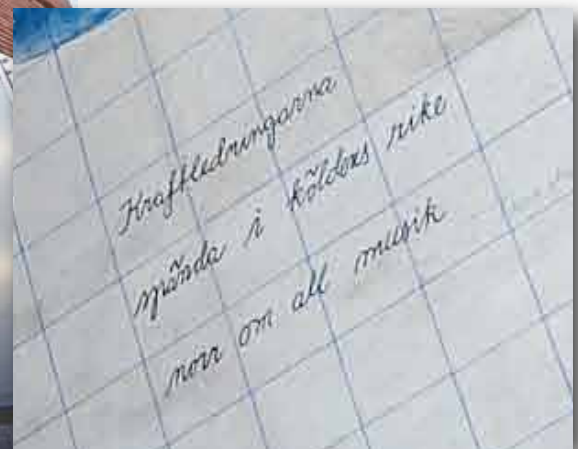 Kraftledningarna
spända i köldens rike
norr om all musik